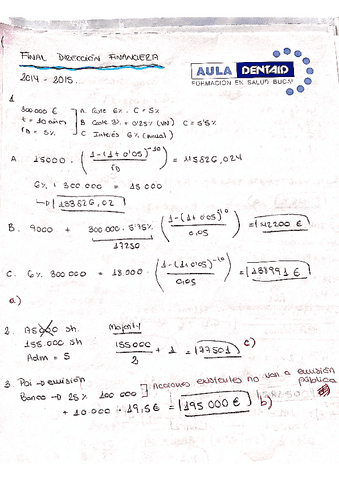 FINAL DIRECCIÓN FINANCIERA
2014 - 2015.
AULA DENTAID
FORMACIÓN EN SALUD BUCAL
1
300 000 €
t = 10 años
rD = 5%
A. Coste 6%. C = 5%
B. Coste 3% + 0'25% (VN) C = 5'5%
C Interés 6% (anual)
A. 15000 · (1-(1+0'05)^-10 / rD) = 115826,024
6% · 300 000 = 18 000
↳ 133826,02
B. 9000 + 300 000 · 5'75% (1-(1+0'05)^-10 / 0,05) = 142200 €
17250
C. 6% 300 000 = 18.000 · (1-(1+0'05)^-10 / 0,05) = 138991 €
a)
2. 155.000 sh.
Adm = 5
Majority
155000 / 2 + 1 = 77501 c)
3. Poi → emisión
Banco → 25% 100 000
Acciones existentes no van a emisión pública
+ 10.000 · 19,5€ = 195 000 € b)